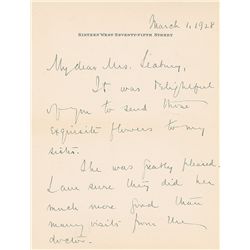 March 1, 1928
SIXTEEN WEST SEVENTY-FIFTH STREET
My dear Mrs.
It was delightful
of you to send those
exquisite flowers to my
sister.
She was greatly pleased.
I am sure they did her
much more good than
many visits from the
doctor.